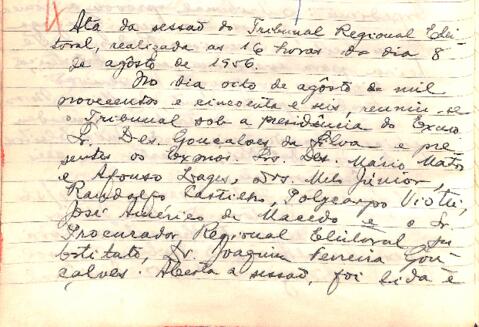 Ata da sessão do Tribunal Regional Elei-
toral, realizada as 16 horas do dia 8
de agôsto de 1956.
No dia oito de agôsto de mil
novecentos e cincoenta e seis, reuniu-se
o Tribunal sob a presidência do Exmo.
Sr. Des. Gonçalves da Silva e pre-
sentes os Exmos. Srs. Des. Mário Matos
e Afonso Lages, Drs. Melo Júnior,
Randolfo Castilho, Polycarpo Viotti,
José Américo de Macedo e o Sr.
Procurador Regional Eleitoral Su
bstituto, Dr. Joaquim Ferreira Gon-
çalves. Aberta a sessão, foi lida e